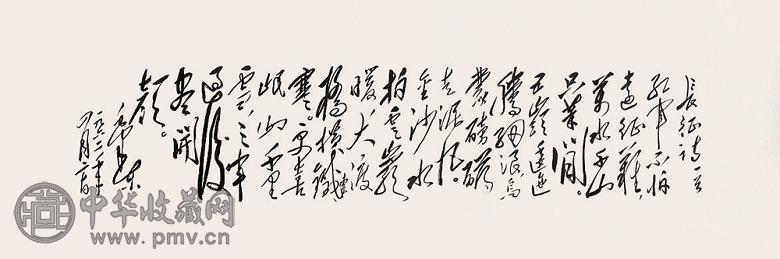 長征詩一首
紅軍不怕
遠征難,
萬水千山
只等閑。
五嶺逶迤
騰細浪,烏
蒙磅礴
走泥丸。
金沙水
拍雲崖
暖,大渡
橋橫鐵索
寒。更喜
岷山千里
雪,三軍
過後
盡開
顏。
毛澤東
一九六二年
四月二十日
中华收藏网
www.pmv.cn